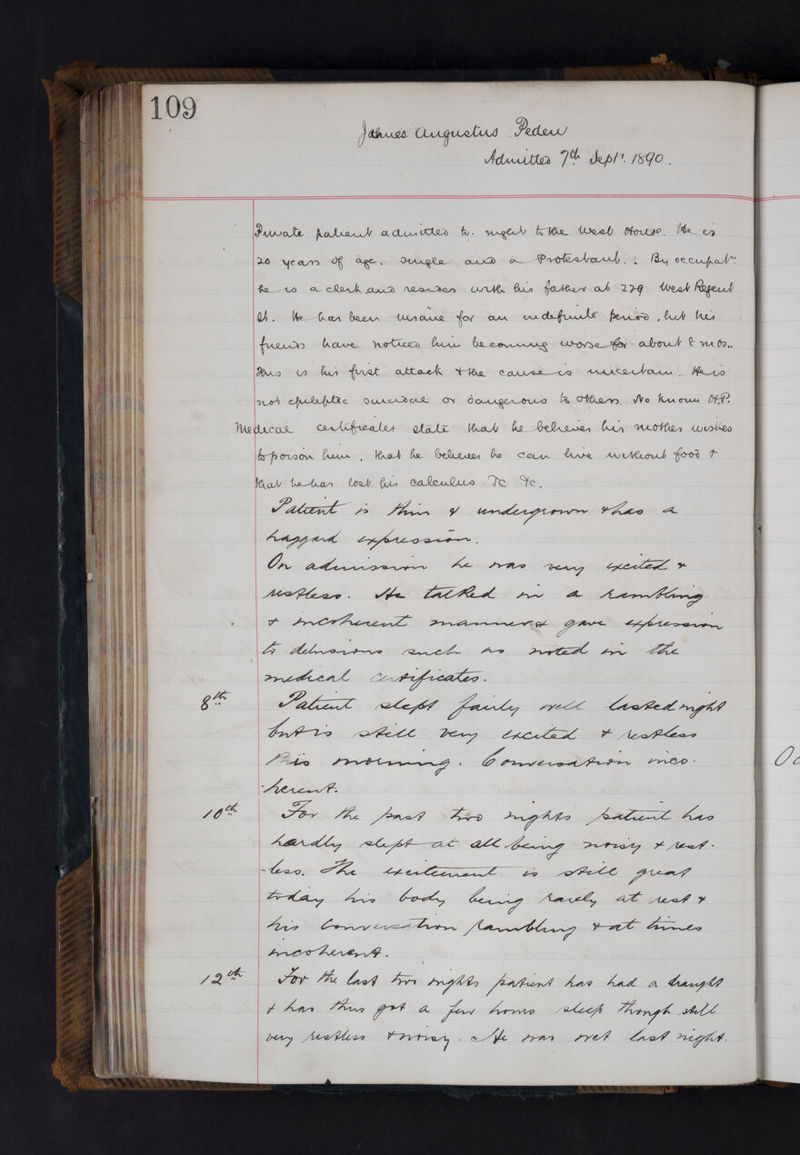 109
James Augustus Peden
Admitted 7th Sept. 1890.
Private patient admitted to. night to the West House. He is
20 years of age, single and a Protestant. . By occupatn
he is a clerk and resides with his father at 279 West Regent
St. He has been insane for an indefinite period, but his
friends have noticed him becoming worse for about 8 mos..
This is his first attack & the cause is uncertain. He is
not epileptic suicidal or dangerous to others. No known H.P.
Medical certificates state that he believes his mother wishes
to poison him, that he believes he can live without food &
that he has lost his calculus &c &c.
Patient is thin & undergrown & has a
haggard expression.
On admission he was very excited &
restless. He talked in a rambling
& incoherent manner & gave expression
to delusions such as noted in the
medical certificates.
8th Patient slept fairly well last night
but is still very excited & restless
this morning. Conversation inco-
herent.
10th For the past two nights patient has
hardly slept at all being noisy & rest-
-less. The excitement is still great
today his body being rarely at rest &
his conversation rambling & at times
incoherent.
12th For the last two nights patient has had a draught
& has thus got a few hours sleep though still
very restless & noisy. He was wet last night.
Oc